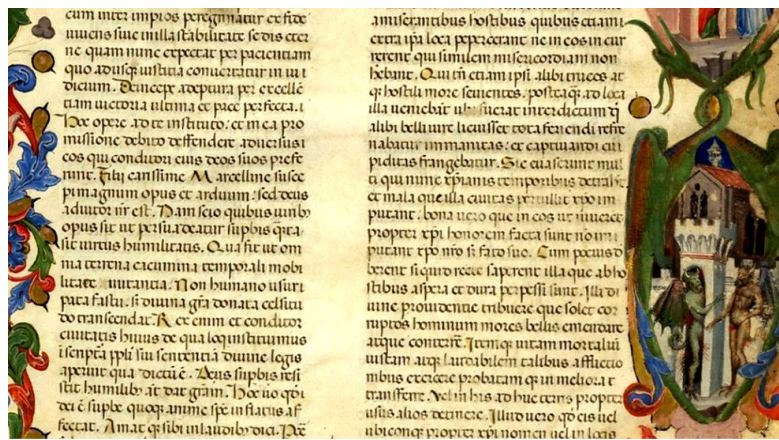 cum inter impios peregrinatur ex fide
uiuens siue in illa stabilitate sedis eter
ne quam nunc expectat per pacientiam
quo adusq̃ iusticia conuertatur in iu i
dicium. Deincepe adeptura per excellẽ
tiam uictoria ultima et pace perfecta. i
Hoc opere ad te instituto: et mea pro
missione debito deffendere aduersus i
eos qui conditori eius deos suos prefe
runt. fili carissime Marcelline susce
pi magnum opus et arduum: sed deus
adiutor nr̃ est. Nam scio quibus uirib9
opus sit ut persuadeatur supbis q̃ta
sit uirtus humilitatis. Qua fit ut om
nia terrena cacumina temporali mobi
litate nutantia. Non humano usuri
pata fastu: s; diuina gr̃a donata celsitu
do transcendat. Rex enim et conditor
ciuitatis huius de qua loq̃ instituimus
i scriptã ppli sui sententiã diuine legis
aperuit qua dictũ ẽ. Deus supbis resi
stit humilib; aũt dat gr̃am. Hoc uo q̃d
dei ẽ supbe quoq; anime spẽ inflatus af
fectat. Amat q; sibi in laudib; dici. Par
amiserantibus hostibus quibus etiam i
extra ipa loca pepercerant ne in eos in cur
rerent qui similem misericordiam non
hebant. Qui tñ etiam ipsi alibi truces at
q; hostili more seuientes. postea q̃ ad loca
illa ueniebãt ubi fuerat interdictum q̃
alibi belli iure licuisset tota feriendi refre
nabatur immanitas: et captiuandi cu
piditas frangebatur. Sic euaserunt mul
ti qui nunc xp̃ianis temporibus detrahũt
et mala que illa ciuitas pertulit xp̃o im
putant. bona uero que in eos ut uiuerẽt
propter xp̃i honorem facta sunt non im
putant xp̃o nr̃o s; fato suo. Cum potius d
berent si quid recte saperent illa que ab ho
stibus aspera et dura perpessi sunt. Illi di
uine prouidentie tribuere que solet cor
ruptos hominum mores bellis emendare
atque conterẽ. Item q; uitam mortaliũ
iustam atq; laudabilem talibus afflictio
nibus exercere probatam q; in meliora t
transferre. Vel in his ad huc terris propter
usus alios detinere. Illud uero q̃d eis uel
ubicunq; propter xp̃i nomen uel in locis